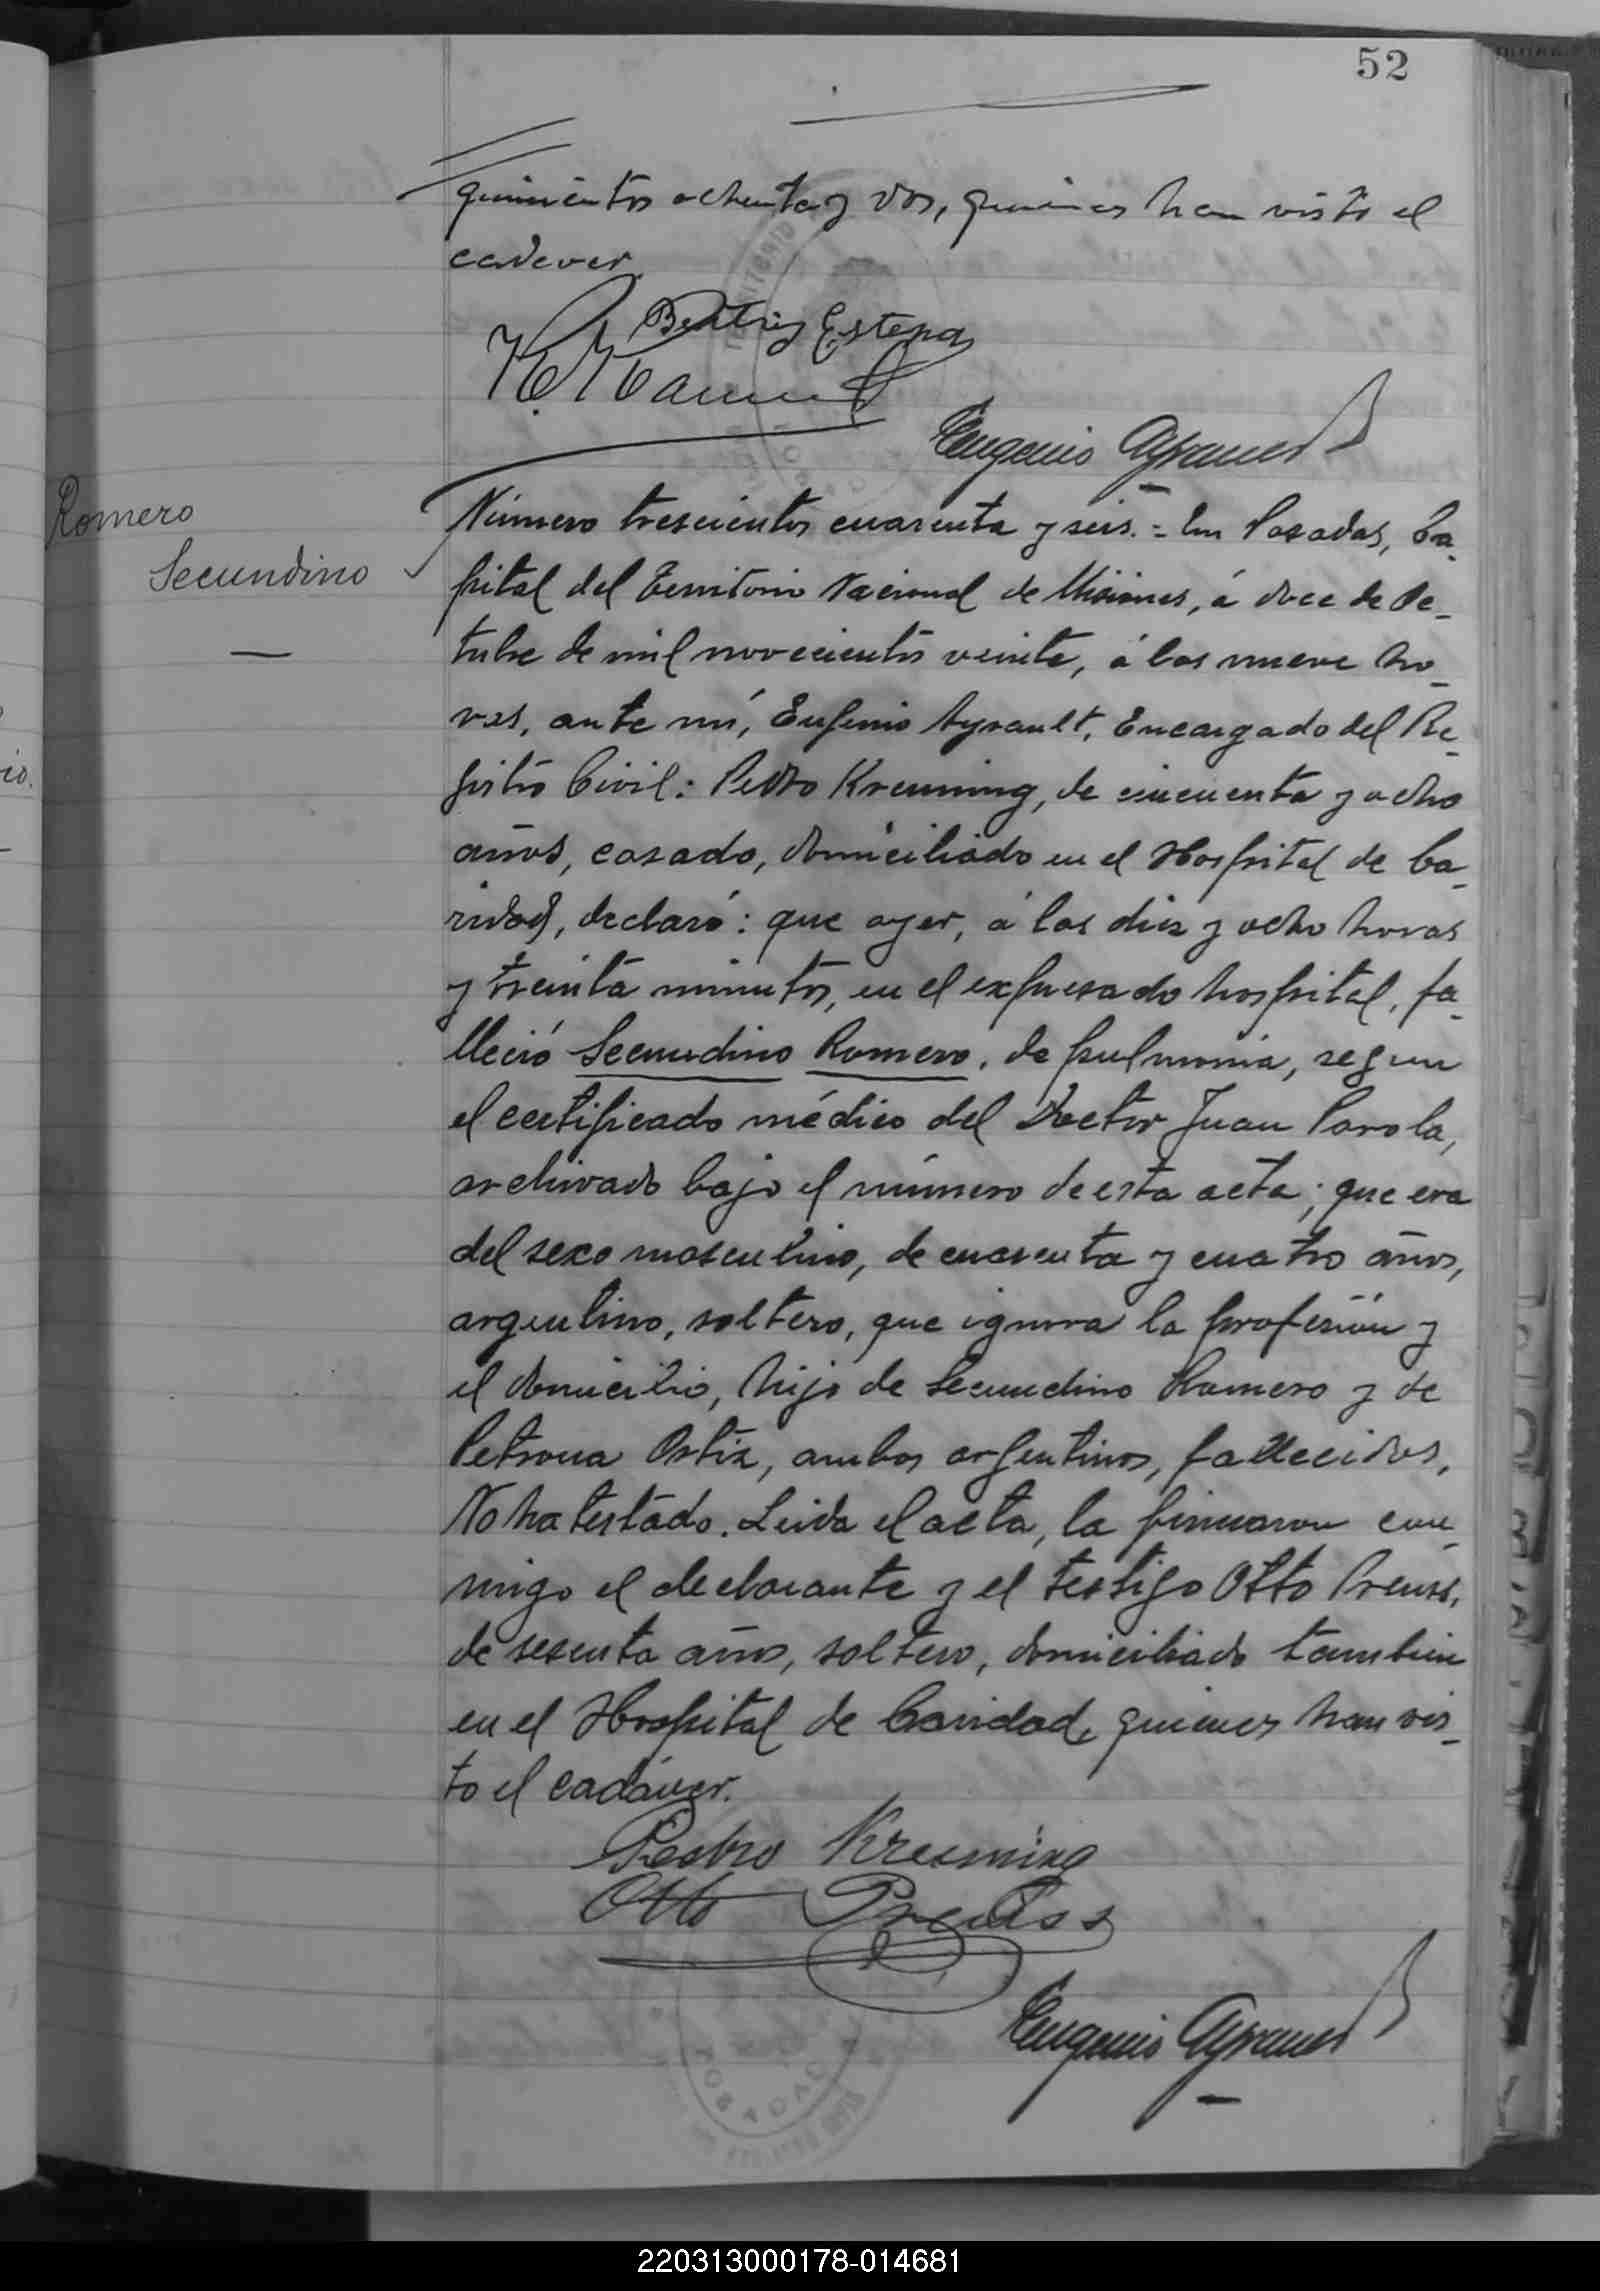 52
quinientos ochenta y dos, quienes han visto el
cadaver.
Beatriz
Eugenio Ayrault
Romero
Secundino
Número trescientos cuarenta y seis. = En Posadas, Ca-
pital del Territorio Nacional de Misiones, á doce de Oc-
tubre de mil novecientos veinte, á las nueve ho-
ras, ante mí, Eugenio Ayrault, Encargado del Re-
gistro Civil: Pedro Kreuning, de cincuenta y ocho
años, casado, domiciliado en el Hospital de Ca-
ridad, declaró: que ayer, á las diez y ocho horas
y treinta minutos, en el expresado hospital, fa-
lleció Secundino Romero, de pulmonia, segun
el certificado médico del Doctor Juan Parola,
archivado bajo el número de esta acta; que era
del sexo masculino, de cuarenta y cuatro años,
argentino, soltero, que ignora la profesión y
el domicilio, hijo de Secundino Romero y de
Petrona Ortiz, ambos argentinos, fallecidos.
No ha testado. Leida el acta, la firmaron con-
migo el declarante y el testigo Otto Preuss,
de sesenta años, soltero, domiciliado tambien
en el Hospital de Caridad, quienes han vis-
to el cadáver.
Pedro Kreuning
Otto Preuss
Eugenio Ayrault
POSADAS
220313000178-014681